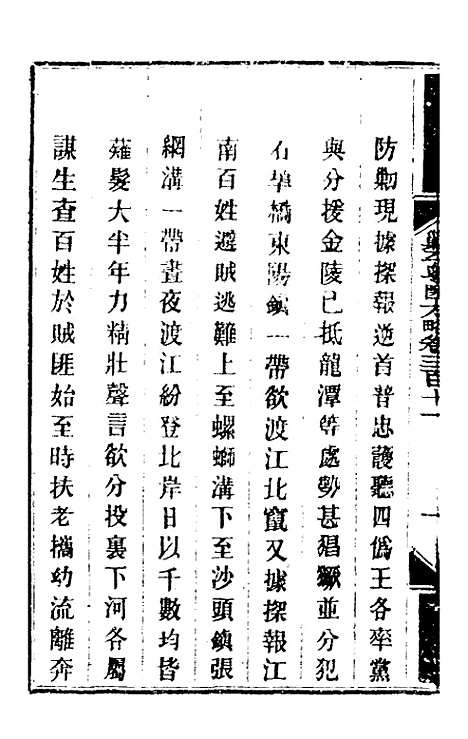 防勦現據探報逆首普忠護聽四僞王各率黨
與分援金陵已抵龍潭等處勢甚猖獗並分犯
石埠橋東陽鎮一帶欲渡江北竄又據探報江
南百姓避賊逃難上至螺螄溝下至沙頭鎮張
網溝一帶晝夜渡江紛登北岸日以千數均皆
薙髮大半年力精壯聲言欲分投裏下河各屬
謀生查百姓於賊匪始至時扶老攜幼流離奔
方略卷三百十一
一